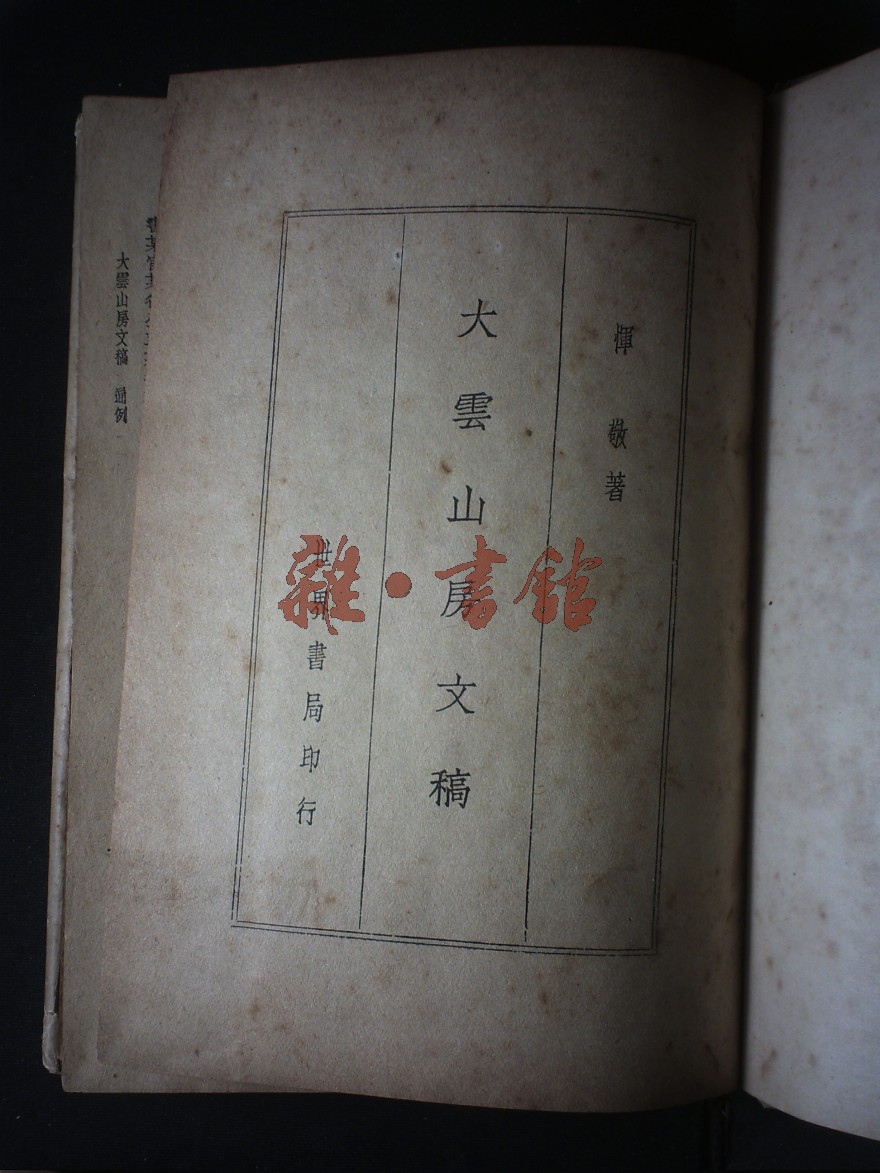 惲敬著
大雲山房文稿
世界書局印行
雜·書館
大雲山房文稿 通例